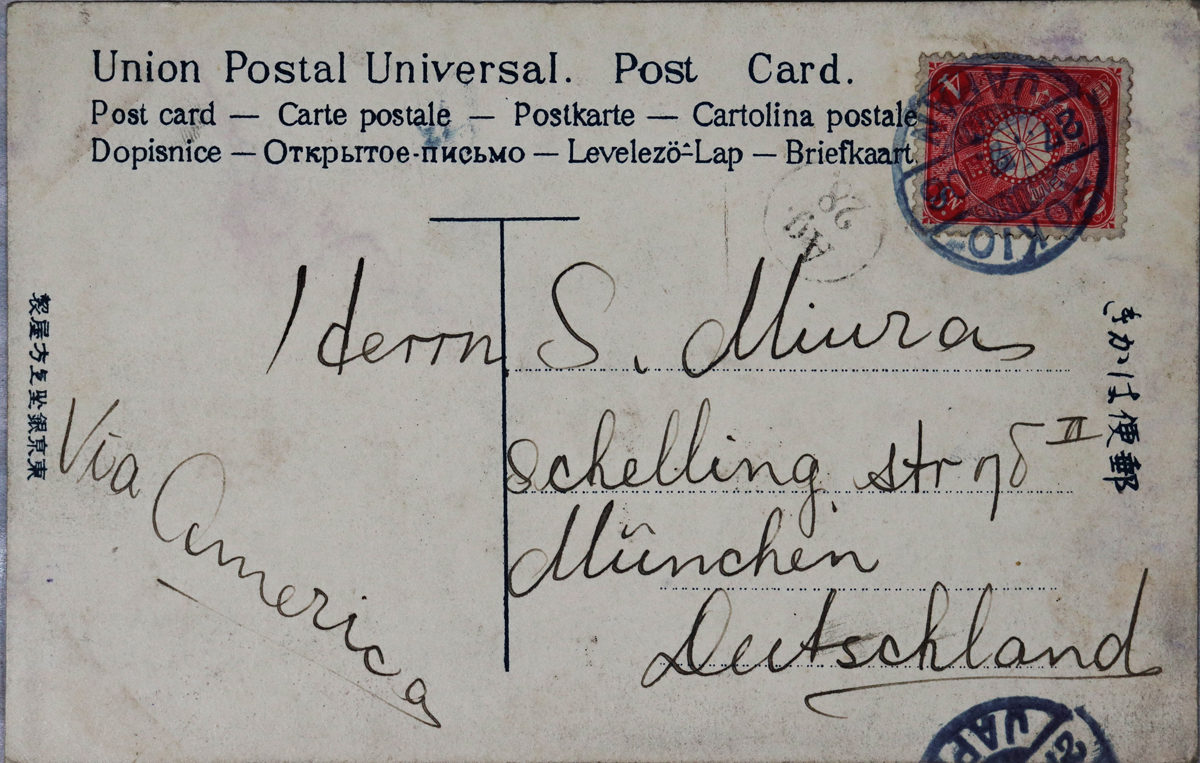 Union Postal Universal. Post Card.
Post card — Carte postale — Postkarte — Cartolina postale
Dopisnice — Открытое-письмо — Levelezö-Lap — Briefkaart
TOKIO JAPAN
4
28
Herrn S. Miura
Schelling str
II
München
Deutschland
Via
America
きかは便郵
製屋方上堅銀京東
JAP